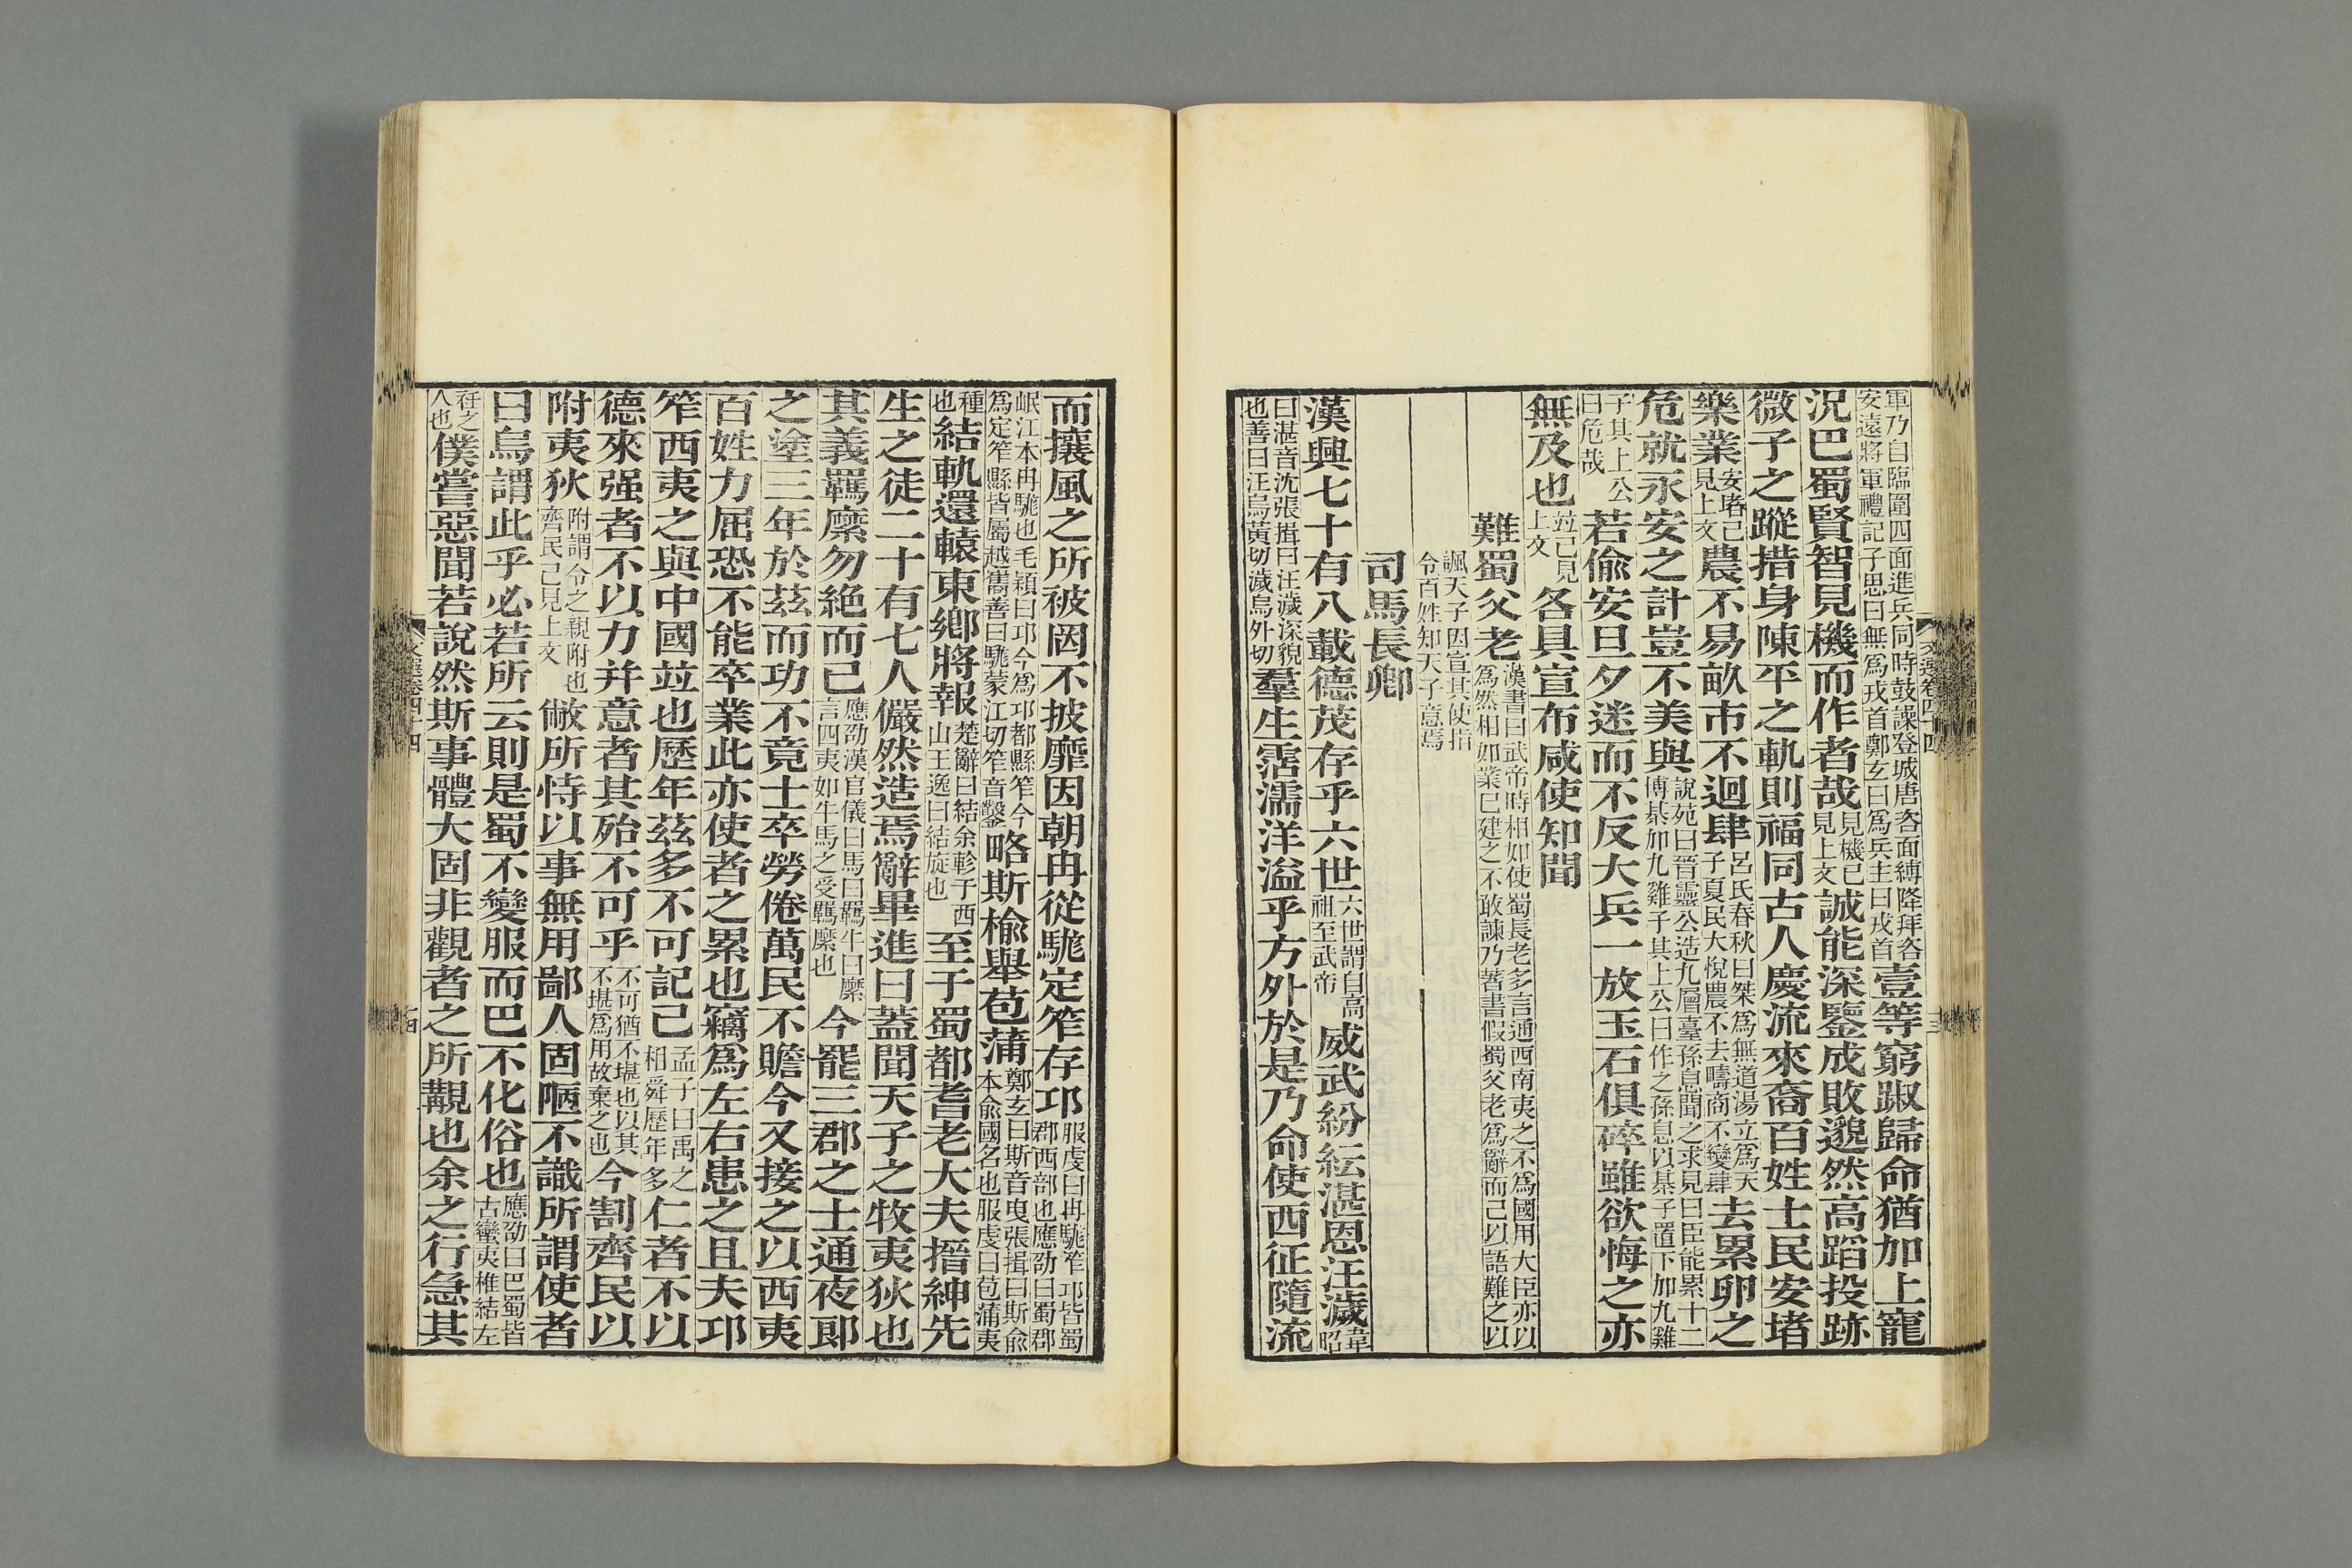 軍乃自臨圍四面進兵同時鼓譟登城唐咨面縛降拜咨安遠將軍禮記子思曰無爲戎首鄭玄曰爲兵主曰戎首壹等窮踧歸命猶加上寵
況巴蜀賢智見機而作者哉見機已見上文誠能深鑒成敗邈然高蹈投跡
微子之蹤措身陳平之軌則福同古人慶流來裔百姓士民安堵
樂業安堵已見上文農不易畝市不迴肆呂氏春秋曰桀爲無道湯立爲天子夏民大悅農不去疇商不變肆去累卵之
危就永安之計豈不美與說苑曰晉靈公造九層臺孫息聞之求見曰臣能累十二博棊加九雞子其上公曰作之孫息以棊子置下加九雞
子其上公曰危哉若偷安旦夕迷而不反大兵一放玉石俱碎雖欲悔之亦
無及也竝已見上文各具宣布咸使知聞
難蜀父老漢書曰武帝時相如使蜀長老多言通西南夷之不爲國用大臣亦以爲然相如業已建之不敢諫乃著書假蜀父老爲辭而己以語難之以
諷天子因宣其使指令百姓知天子意焉
司馬長卿
漢興七十有八載德茂存乎六世六世謂自高祖至武帝威武紛紜湛恩汪濊韋昭
曰湛音沈張揖曰汪濊深貌也善曰汪烏黃切濊烏外切羣生霑濡洋溢乎方外於是乃命使西征隨流
而攘風之所被罔不披靡因朝冉從駹定笮存邛服虔曰冉駹笮邛皆蜀郡西部也應劭曰蜀郡
岷江本冉駹也毛穎曰邛今爲邛都縣笮今爲定笮縣皆屬越嶲善曰駹蒙江切笮音鑿略斯榆舉苞蒲鄭玄曰斯音曳張揖曰斯俞本俞國名也服虔曰苞蒲夷
種也結軌還轅東鄉將報楚辭曰結余軫于西山王逸曰結旋也至于蜀都耆老大夫搢紳先
生之徒二十有七人儼然造焉辭畢進曰蓋聞天子之牧夷狄也
其義羈縻勿絕而已應劭漢官儀曰馬曰羈牛曰縻言四夷如牛馬之受羈縻也今罷三郡之士通夜郞
之塗三年於茲而功不竟士卒勞倦萬民不贍今又接之以西夷
百姓力屈恐不能卒業此亦使者之累也竊爲左右患之且夫邛
笮西夷之與中國竝也歷年茲多不可記已孟子曰禹之相舜歷年多仁者不以
德來强者不以力并意者其殆不可乎不可猶不堪也以其不堪爲用故棄之也今割齊民以
附夷狄附謂令之親附也齊民已見上文敝所恃以事無用鄙人固陋不識所謂使者
曰烏謂此乎必若所云則是蜀不變服而巴不化俗也應劭曰巴蜀皆古蠻夷椎結左
衽之人也僕嘗惡聞若說然斯事體大固非觀者之所覯也余之行急其